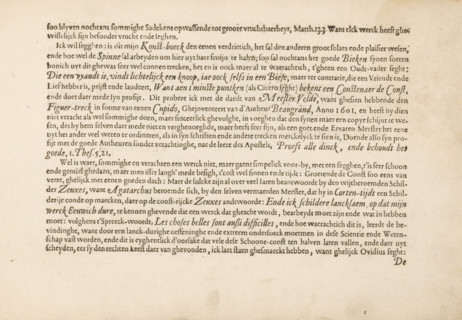 soo blyven nochtans sommighe Sadekens opwassende tot groote vruchtbaerheyt, Matth. 13.3. Want elck werck heeft ghe-
wisselijck sijn besonder vrucht ende leghen.
Ick wil segghen: is dit mijn Konst-boeck den eenen verdrietich, het sal den anderen groot solaes ende plaisier wesen,
ende hoe wel de Spinne sal arbeyden om hier uyt haer fenijn te halen; soo sal nochtans het goede Bieken synen soeten
honich uyt dit ghewas seer wel connen trecken, het en is oock maer al te waerachtich, t'gheen een Oudt-vader seght:
Die een vyandt is, vindt lichtelijck een knoop, iae oock selfs in een Biese, maer ter contrarie, die een Vriendt ende
Lief hebber is, prijst ende laudeert, Want aen 't minste puncken (als Cicero seght) bekent een Constenaer de Const,
ende doet daer mede syn profijt. Dit probere ick met de daedt van Meester Velde, want ghesien hebbende den
Figuer-treck in forme van eenen Cupido, Gheinventeert van d'Autheur Beaugrand, Anno 1601, en heeft hy dien
niet veracht als wel sommighe doen, maer sinceerlick ghevolght, in voeghen dat den synen maer een copye schijnt te we-
sen, des hy hem selven daer mede niet en verghenoeghde, maer heeft sich, als een goet ende Ervaren Meester het eene
uyt het ander wel weten te ordineren, als in syn schriften ende andere trecken noch meer, merckelijck te sien is, Doende also syn pro-
fijt met de goede Autheuren sonder verachtinghe, nae de leere des Apostels, Proeft alle dinck, ende behoudt het
goede, 1. Thes. 5.21.
Wel is waer, sommighe en verachten een werck niet, maer gaent simpelick voor-by, met een segghen, t'is seer schoon
ende geestich ghedaen, maer men isser langh' mede besigh, t'cost veel sinnen ende tijdt: Groetende de Const soo eens van
verre, ghelijck met eenen gooden dach: Maer de sulcke zijn al over veel iaren beantwoordt by den wijtberoemden Schil-
der Zeuxes, want Agatarchus beroemde sich, by den selven vermaerden Meester, dat hy in Corten-tijdt een Schil-
derije conde op maecken, daer op de const-rijcke Zeuxes andtwoorde: Ende ick schildere lancksaem, op dat mijn
werck Eeuwich dure, te kennen ghevende dat een werck dat gheacht wordt, bearbeydt moet zijn ende wat in hebben
moet: volghens t'Spreeck-woordt. Les choses belles sont aussi difficilles, ende hoe waerachtich dit is, leerdt de be-
vindinghe, want door een lanck-durighe oeffeninghe ende extreem ondersoeck moetmen in dese Scientie ende Weten-
schap vast worden, ende dit is eyghentlick d'oorsake dat vele dese Schoone-const ten halven laten vallen, ende daer uyt
schryden, eer sy den rechten keest daer van ghevonden, ick laet staen ghesmaeckt hebben, want ghelijck Ovidius seght:
De